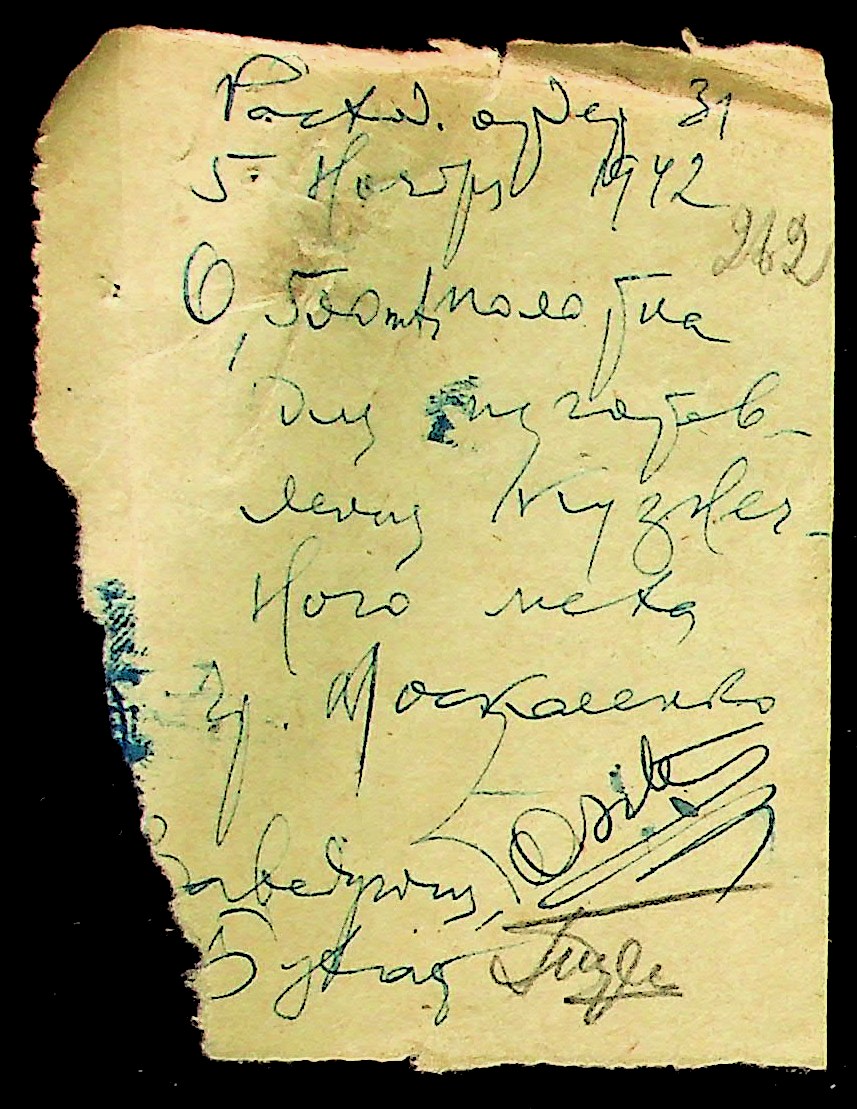 Расход. ордер 31
5 Ноября 1942
262
0,500 mtr полотна
для изготов-
ления Кузнеч-
ного меха
гр. Москаленко
Заведующ,
Бухга